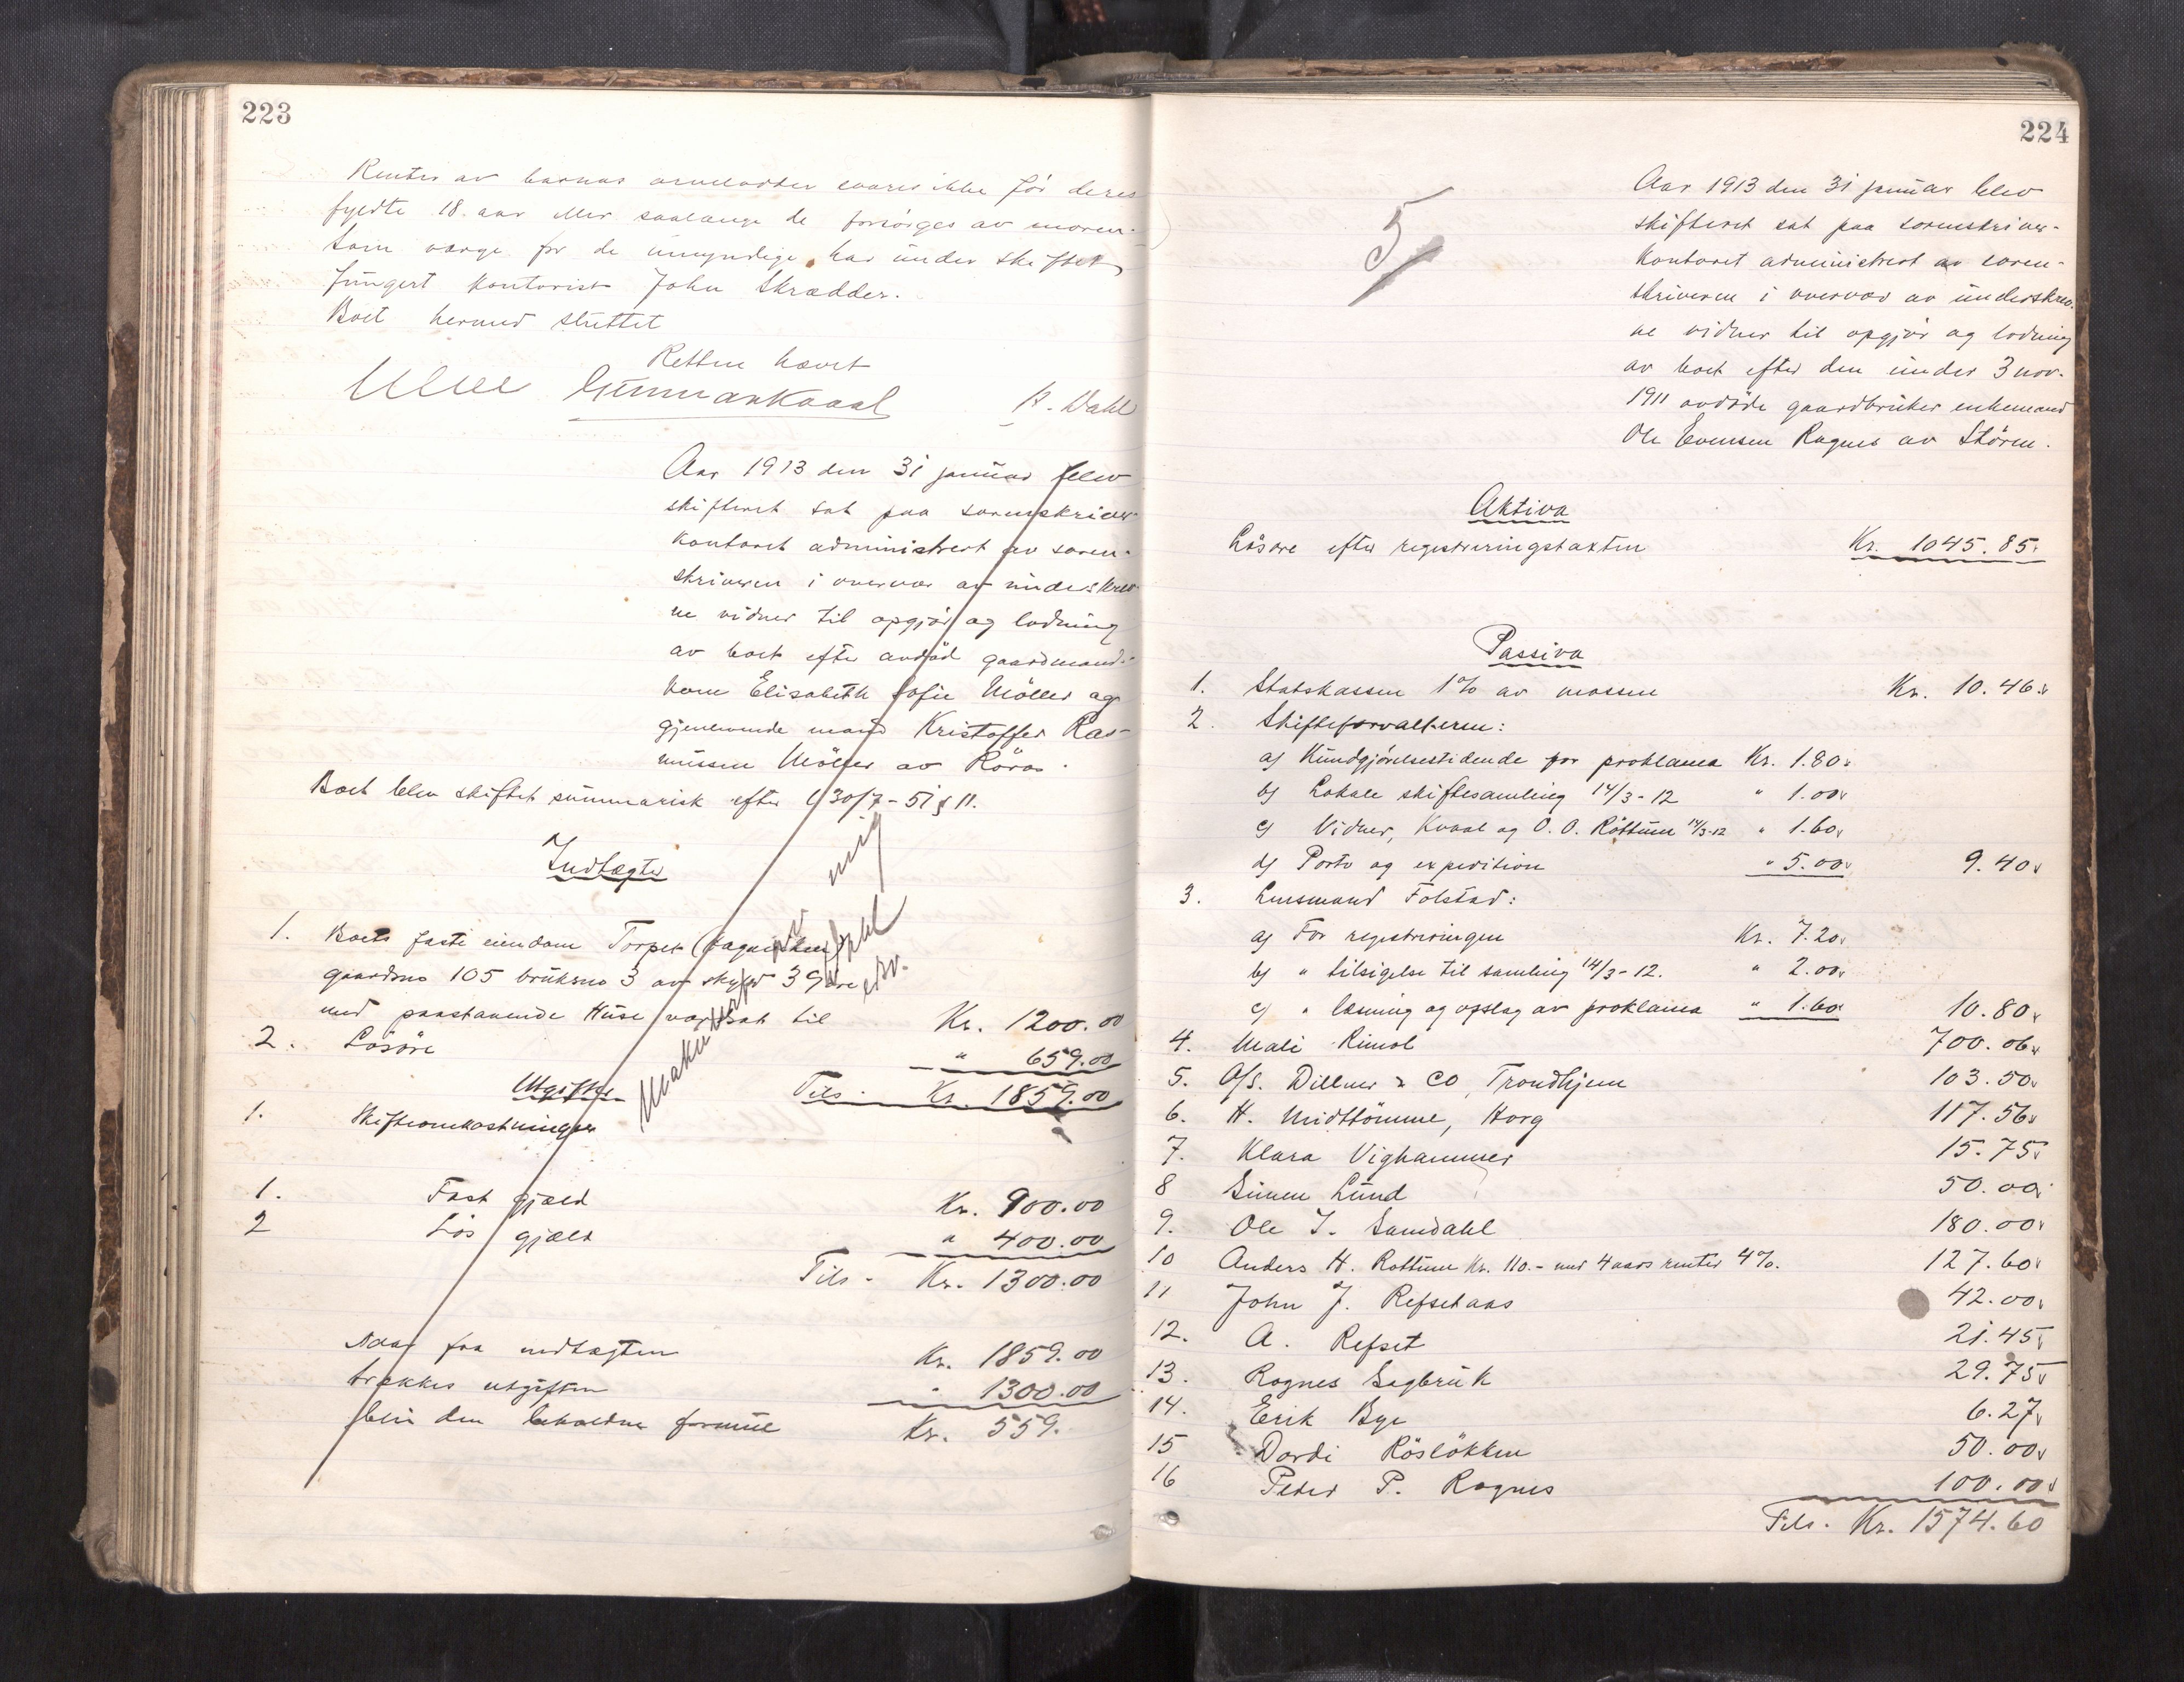 223
Renter av barnas arvelodder svares ikke før deres
fyldte 18. aar eller saalænge de forsörges av moren.
Som værge for de umyndige har under skiftet
fungert kontorist John Skrædder.
Boet hermed sluttet
Retten hævet
Gunnar Kvaal P. Dahl
Aar 1913 den 31 januar blev
skifteret sat paa sorenskriver-
kontoret administrert av soren-
skriveren i overvær av underskrev-
ne vidner til opgjör og lodning
av boet efter avdöd gaardmands-
kone Elisabeth Sofie Möller og
gjenlevende mand Kristoffer Ras-
mussen Möller av Röros.
Boet blev skiftet summarisk efter l 30/7-51 § 11.
Indtægter
1. Boets faste eiendom Torpet
gaardsno 105 bruksno 3 av skyld 39 øre
med paastaaende Huse værdsat til Kr. 1200.00
2. Lösöre " 659.00
Tils. Kr. 1859.00
Utgifter
1. Skifteomkostninger
1. Fast gjæld Kr. 900.00
2 Lös gjæld " 400.00
Tils. Kr. 1300.00
Naar fra indtægten Kr. 1859.00
trækkes utgiften " 1300.00
blir den beholdne formue Kr. 559.
mig
224
5
Aar 1913 den 31 januar blev
skifteret sat paa sorenskriver-
kontoret administrert av soren-
skriveren i overvær av underskrev-
ne vidner til opgjör og lodning
av boet efter den under 3 nov.
1911 avdöde gaardbruker enkemand
Ole Evensen Rognes av Stören.
Aktiva
Lösöre efter registreringstaxten Kr. 1045.85
Passiva
1. Statskassen 1% av massen Kr. 10.46
2. Skifteforvalteren:
a) Kundgjörelsestidende for proklama Kr. 1.80
b) Lokale skiftesamling 14/3-12 " 1.00
c) Vidner, Kvaal og O. O. Rottum 14/3-12 " 1.60
d) Porto og expedition " 5.00 9.40
3. Lensmand Folstad:
a) For registreringen Kr. 7.20
b) " tilsigelse til samling 14/3-12. " 2.00
c) " læsning og opslag av proklama " 1.60 10.80
4. Mali Rimol 700.06
5. A/S. Dillner & Co, Trondhjem 103.50
6. H. Midttömme, Horg 117.56
7. Klara Vighammer 15.75
8 Simen Lund 50.00
9. Ole J. Samdahl 180.00
10 Anders H. Rottum Kr. 110.- med 4 aars renter 4%. 127.60
11 John J. Refsetaas 42.00
12. A. Refset 21.45
13. Rognes Sagbruk 29.75
14. Erik Bye 6.27
15 Dordi Röslökken 50.00
16 Peder P. Rognes 100.00
Tils. Kr. 1574.60